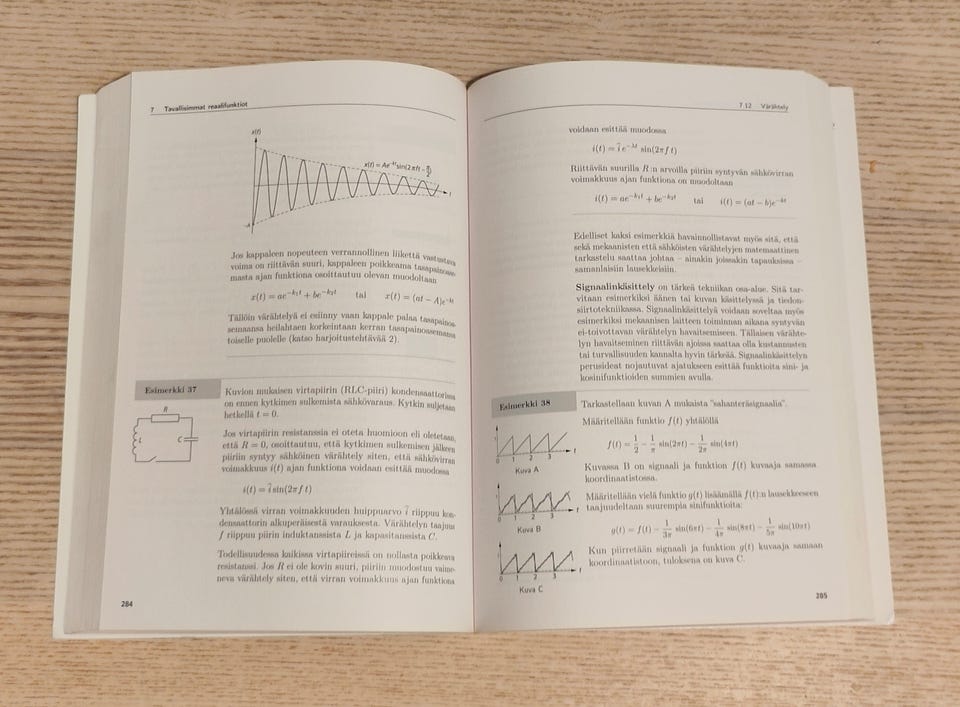 7 Tavallisimmat reaalifunktiot
x(t)
x(t) = Ae^{-kt}sin(2πft - π/2)
t
-A
Jos kappaleen nopeuteen verrannollinen liikettä vastustava
voima on riittävän suuri, kappaleen poikkeama tasapainoase-
masta ajan funktiona osoittautuu olevan muodoltaan
x(t) = ae^{-k₁t} + be^{-k₂t} tai x(t) = (at - A)e^{-kt}
Tällöin värähtelyä ei esiinny vaan kappale palaa tasapaino-
asemaansa heilahtaen korkeintaan kerran tasapainoasemansa
toiselle puolelle (katso harjoitustehtävää 2).
Esimerkki 37
Kuvion mukaisen virtapiirin (RLC-piiri) kondensaattorissa
on ennen kytkimen sulkemista sähkövaraus. Kytkin suljetaan
hetkellä t = 0.
R
L
C
Jos virtapiirin resistanssia ei oteta huomioon eli oletetaan,
että R = 0, osoittautuu, että kytkimen sulkemisen jälkeen
piiriin syntyy sähköinen värähtely siten, että sähkövirran
voimakkuus i(t) ajan funktiona voidaan esittää muodossa
i(t) = î sin(2πf t)
Yhtälössä virran voimakkuuden huippuarvo î riippuu kon-
densaattorin alkuperäisestä varauksesta. Värähtelyn taajuus
f riippuu piirin induktanssista L ja kapasitanssista C.
Todellisuudessa kaikissa virtapiireissä on nollasta poikkeava
resistanssi. Jos R ei ole kovin suuri, piiriin muodostuu vaime-
neva värähtely siten, että virran voimakkuus ajan funktiona
284
7.12 Värähtely
voidaan esittää muodossa
i(t) = î e^{-λt} sin(2πf t)
Riittävän suurilla R:n arvoilla piiriin syntyvän sähkövirran
voimakkuus ajan funktiona on muodoltaan
i(t) = ae^{-k₁t} + be^{-k₂t} tai i(t) = (at - b)e^{-kt}
Edelliset kaksi esimerkkiä havainnollistavat myös sitä, että
sekä mekaanisten että sähköisten värähtelyjen matemaattinen
tarkastelu saattaa johtaa – ainakin joissakin tapauksissa –
samanlaisiin lausekkeisiin.
Signaalinkäsittely on tärkeä tekniikan osa-alue. Sitä tar-
vitaan esimerkiksi äänen tai kuvan käsittelyssä ja tiedon-
siirtotekniikassa. Signaalinkäsittelyä voidaan soveltaa myös
esimerkiksi mekaanisen laitteen toiminnan aikana syntyvän
ei-toivottavan värähtelyn havaitsemiseen. Tällaisen värähte-
lyn havaitseminen riittävän ajoissa saattaa olla kustannusten
tai turvallisuuden kannalta hyvin tärkeää. Signaalinkäsittelyn
perusideat nojautuvat ajatukseen esittää funktioita sini- ja
kosinifunktioiden summien avulla.
Esimerkki 38
Tarkastellaan kuvan A mukaista "sahanteräsignaalia".
Määritellään funktio f(t) yhtälöllä
f(t) = 1/2 - 1/π sin(2πt) - 1/2π sin(4πt)
0 1 2 3 t
Kuva A
Kuvassa B on signaali ja funktion f(t) kuvaaja samassa
koordinaatistossa.
Määritellään vielä funktio g(t) lisäämällä f(t):n lausekkeeseen
taajuudeltaan suurempia sinifunktioita:
0 1 2 3 t
Kuva B
g(t) = f(t) - 1/3π sin(6πt) - 1/4π sin(8πt) - 1/5π sin(10πt)
Kun piirretään signaali ja funktion g(t) kuvaaja samaan
koordinaatistoon, tuloksena on kuva C.
0 1 2 3 t
Kuva C
285